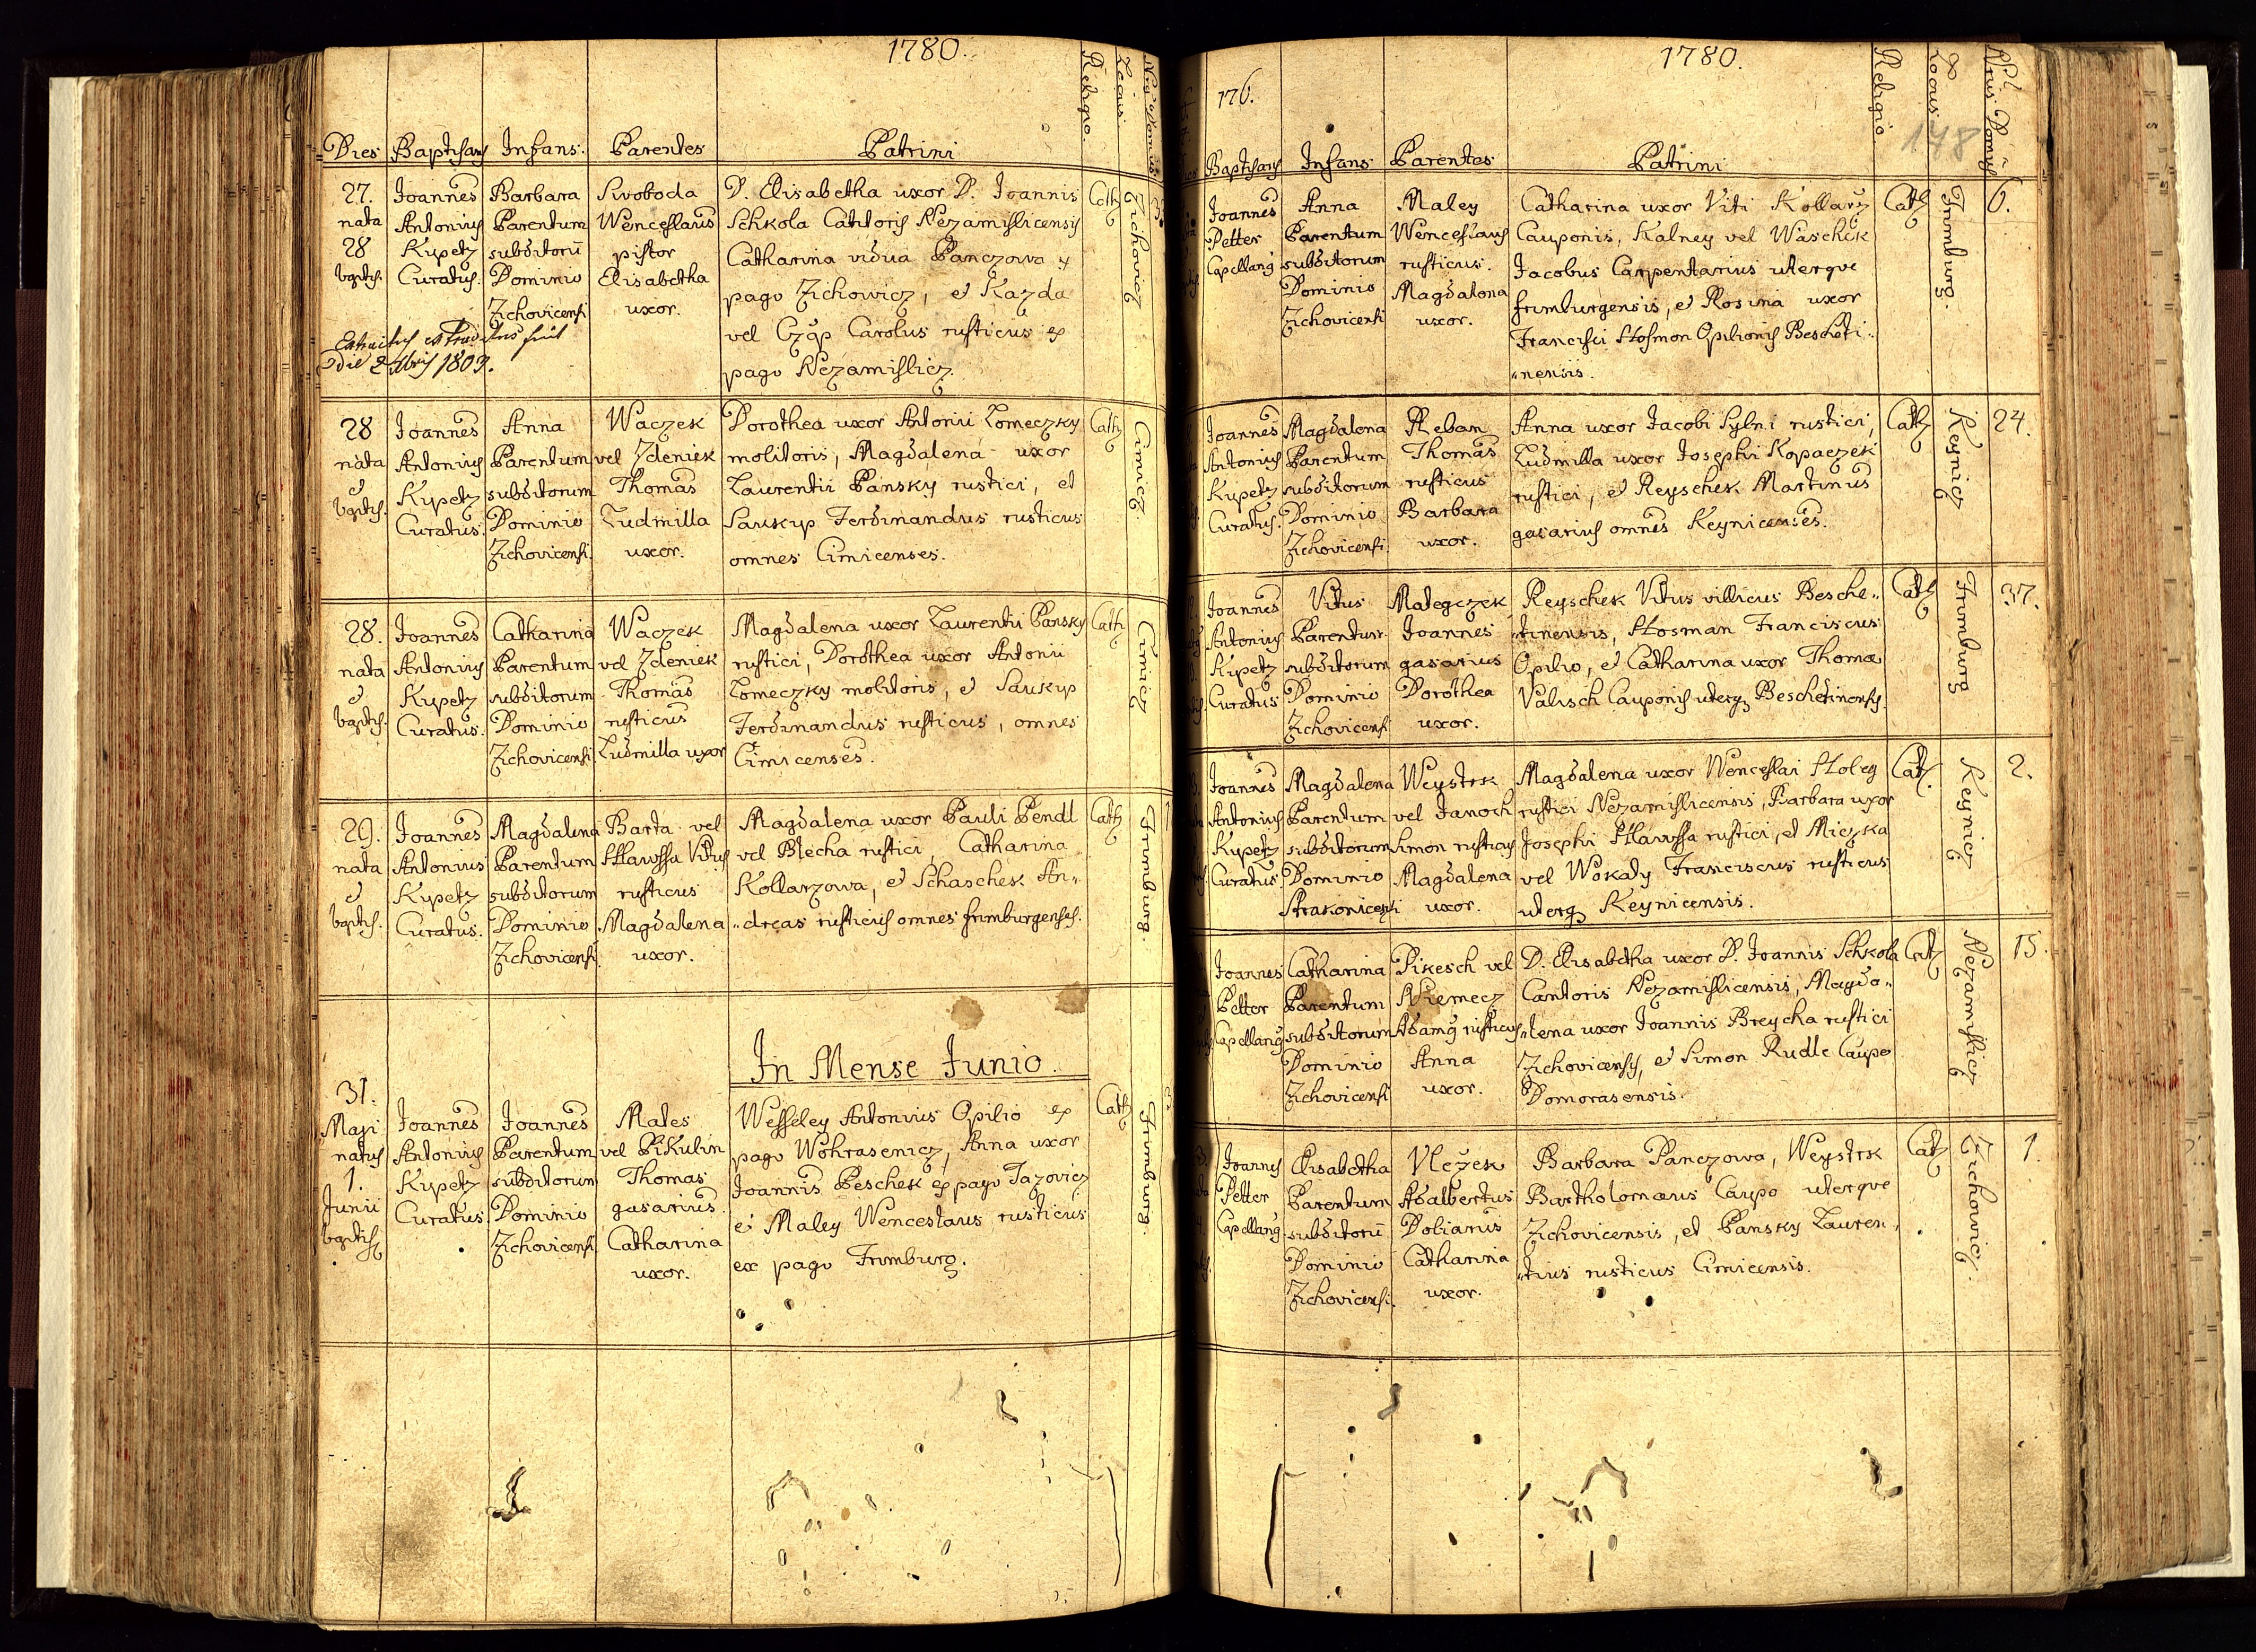 1780.
Religio.
Locus.
Dies Baptisans Infans. Parentes Patrini
27. Joannes Barbara Swoboda D. Elisabetha uxor D. Joannis Cath
nata Antonius Parentum Wenceslaus Schkola Cantoris Nezamislicensis
28 Kypetz subditorū pistor Catharina vidua Panczowa ex
baptis. Curatus. Dominio Elisabetha pago Zichowicz, et Kazda
Zichovicensi uxor. vel Czáp Carolus rusticus ex
pago Nezamislicz.
Zichovicz
die 1809.
28 Joannes Anna Waczek Dorothea uxor Antonii Lomeczky Cath
nata Antonius Parentum vel Zdeniek molitoris, Magdalena uxor
et Kypetz subditorum Thomas Laurentii Pansky rustici, et
baptis. Curatus. Dominio Ludmilla Saukup Ferdinandus rusticus
Zichovicensi. uxor. omnes Cimicenses.
Cimicz
28. Joannes Catharina Waczek Magdalena uxor Laurentii Pansky Cath
nata Antonius Parentum vel Zdeniek rustici, Dorothea uxor Antonii
et Kypetz subditorum Thomas Lomeczky molitoris, et Saukup
baptis. Curatus. Dominio rusticus Ferdinandus rusticus, omnes
Zichovicensi Ludmilla uxor Cimicenses.
Cimicz
29. Joannes Magdalena Barta vel Magdalena uxor Pauli Pendl Cath
nata Antonius Parentum Hlawssa Vitus vel Blecha rustici, Catharina
et Kypetz subditorum rusticus Kollarzowa, et Schaschek An„
baptis. Curatus. Dominio Magdalena „dreas rusticus omnes frimburgenses.
Zichovicensi. uxor.
Frimburg.
In Mense Junio.
31.
Maji Joannes Joannes Mates Wesseley Antonius Opilio ex Cath
natus Antonius Parentum vel Pikulin pago Wohrasenicz, Anna uxor
1. Kypetz subditorum Thomas Joannis Peschek ex pago Jazovicz
Junii Curatus. Dominio gasarius et Maley Wenceslaus rusticus
baptis Zichovicensi Catharina ex pago Frimburg.
uxor.
Frimburg.
176.
1780.
Religio.
Locus.
148
Baptisans Infans Parentes Patrini
Joannes Anna Maley Catharina uxor Viti Kollarz Cath 6.
Petter Parentum Wenceslaus Cauponis, Kalney vel Waschek
Capellanus subditorum rusticus. Jacobus Carpentarius uterque
Dominio Magdalena frimburgensis, et Rosina uxor
Zichovicensi uxor. Francisci Hosmon Opilionis Bescheti„
„nensis.
Frimburg
Joannes Magdalena Reban Anna uxor Jacobi Sylni rustici, Cath 24.
Antonius Parentum Thomas Ludmilla uxor Josephi Kopaczek
Kypetz subditorum rusticus rustici, et Reyschek Martinus
Curatus. Dominio Barbara gasarius omnes Keynicenses.
Zichovicensi. uxor.
Keynicz
Joannes Vitus Mategczek Reyschek Vitus villicus Besche„ Cath 37.
Antonius Parentum Joannes „tinensis, Hosman Franciscus
Kypetz subditorum gasarius Opilio, et Catharina uxor Thomæ
Curatus Dominio Dorothea Valisch Cauponis uterq Beschetinensis.
Zichovicensi uxor.
Frimburg
Joannes Magdalena Weystrk Magdalena uxor Wenceslai Holey Cath. 2.
Antonius Parentum vel Janoch rustici Nezamislicensis, Barbara uxor
Kypetz subditorum Simon rusticus Josephi Hlawssa rustici, et Miczka
Curatus Dominio Magdalena vel Wokaly Franciscus rusticus
Strakonicensi uxor. uterq Keynicensis.
Keynicz
Joannes Catharina Pikesch vel D. Elisabetha uxor D. Joannis Schkola Cath 15.
Petter Parentum Niemecz Cantoris Nezamislicensis, Magda„
Capellanus subditorum Adamus rusticus „lena uxor Joannis Breycha rustici
Dominio Anna Zichovicensis, et Simon Rudle Caupo
Zichovicensi uxor. Domorasensis.
Nezamislicz
Joannes Elisabetha Vlczek Barbara Panczowa, Weystrk Cath 1.
Petter Parentum Adalbertus Bartholomæus Caupo uterque
Capellanus subditorū Doliarius Zichovicensis, et Pansky Lauren„
Dominio Catharina „tius rusticus Cimicensis.
Zichovicensi. uxor.
Zichovicz.